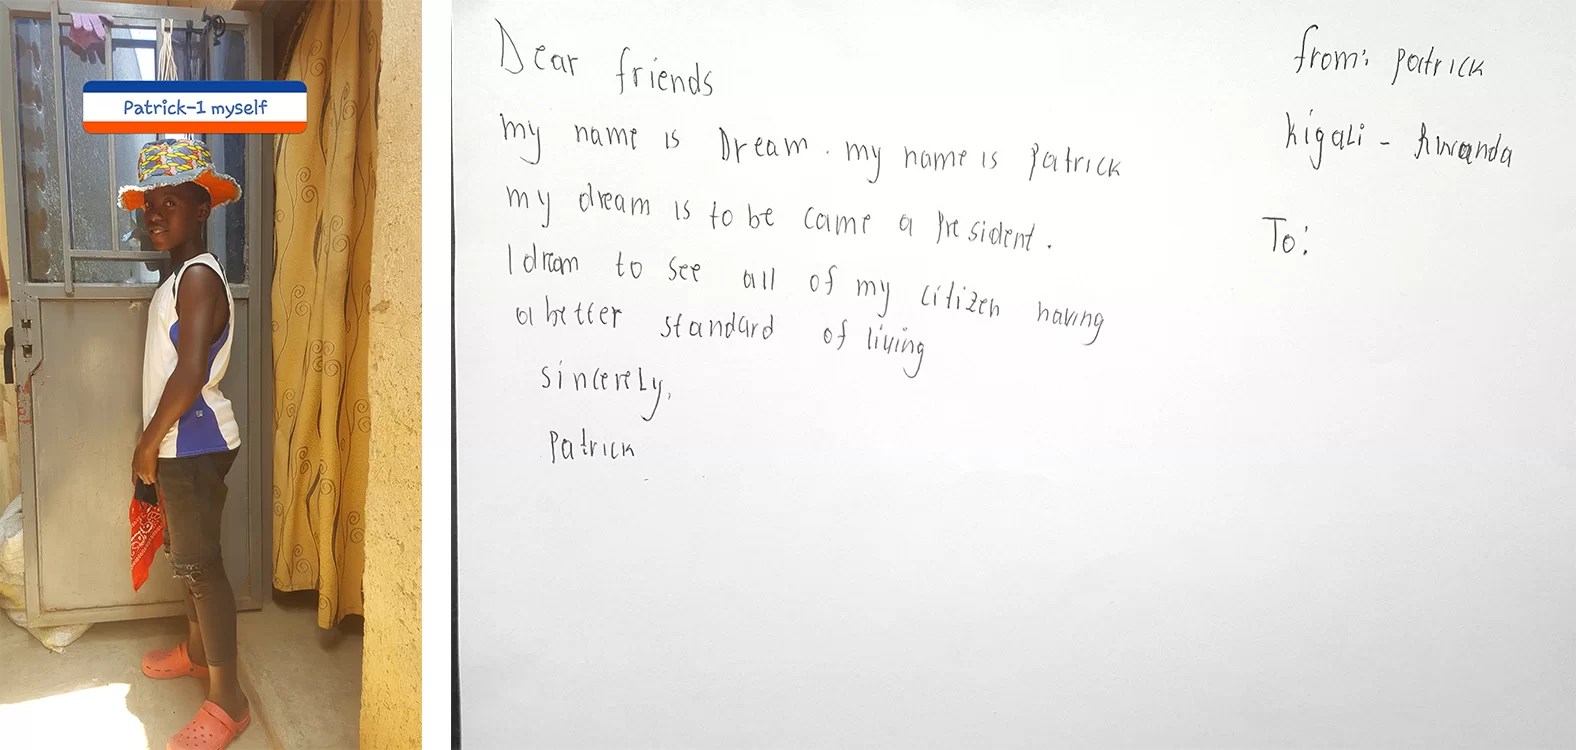 Patrick-1 myself
Dear friends
my name is Dream. my name is Patrick
my dream is to be came a President.
I dream to see all of my citizen having
a better standard of living
sincerely,
Patrick
from: patrick
kigali - Rwanda
To: